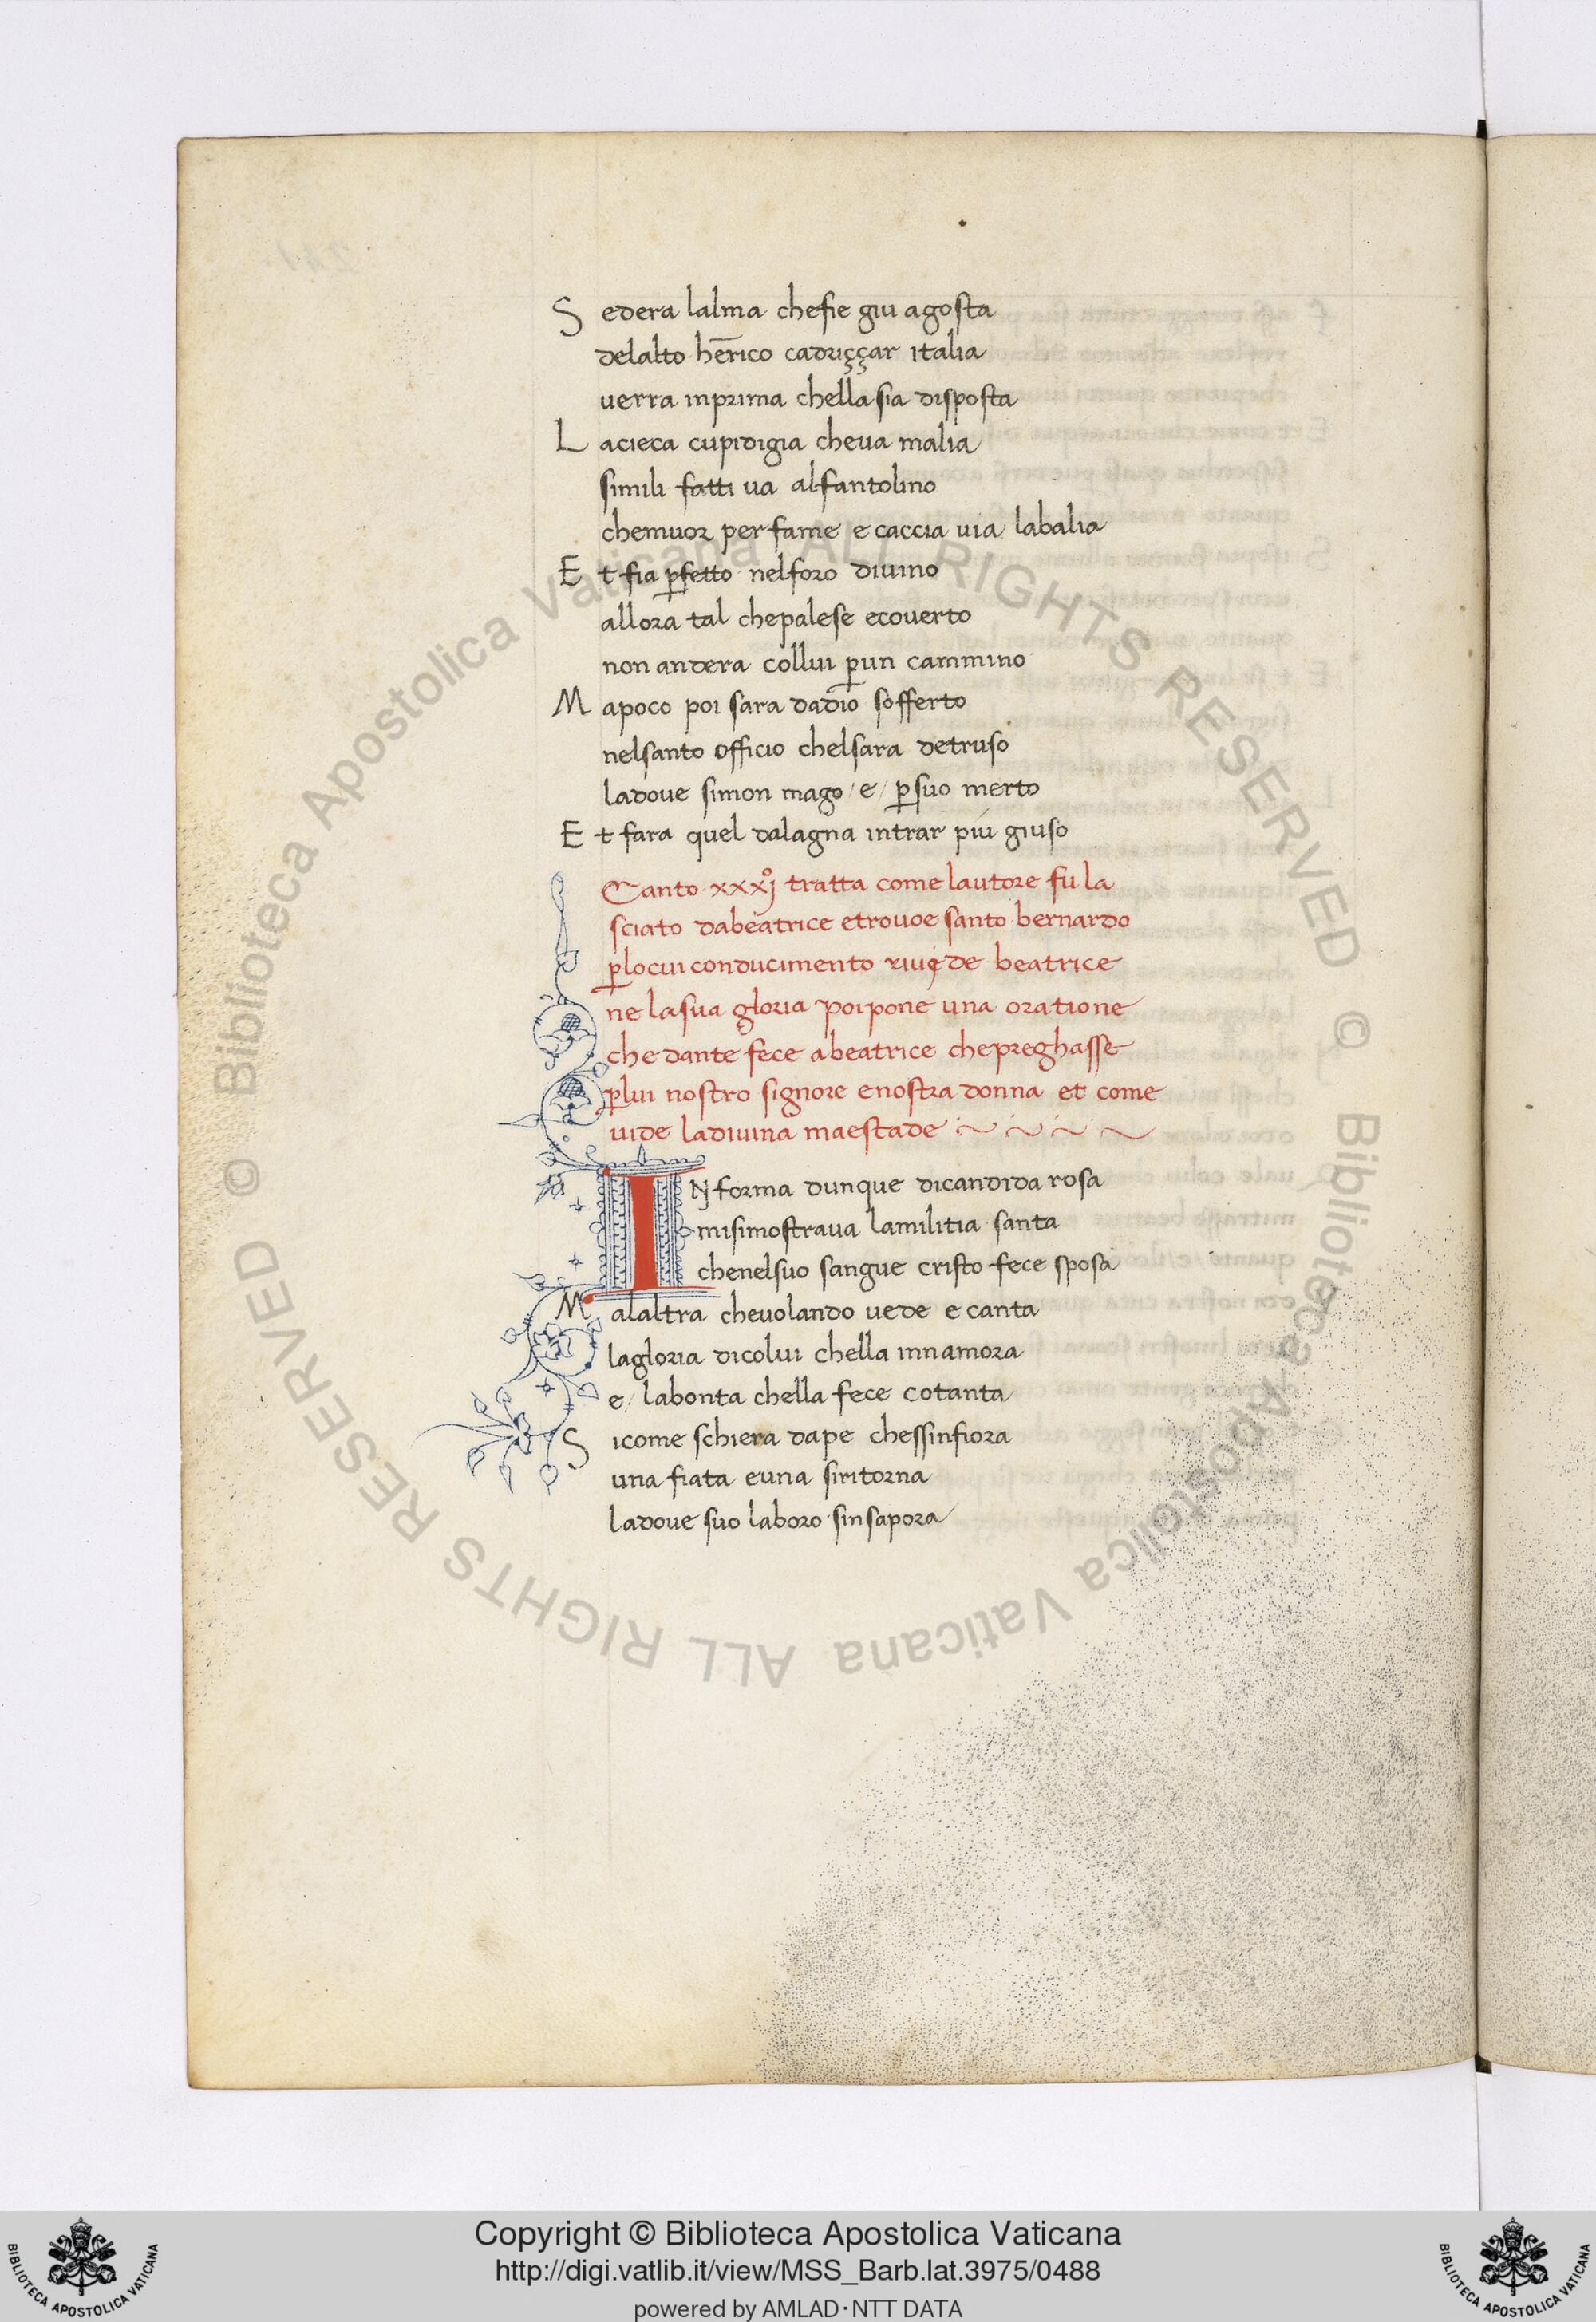 S edera lalma chefie giu agosta
delalto hērico cadriççar italia
uerra inprima chella sia disposta
L acieca cupidigia cheua malia
simili fatti ua alfantolino
chemuor per fame e caccia uia labalia
E t fia ꝑfetto nelforo diuino
allora tal chepalese ecouerto
non andera collui ꝑun cammino
M apoco poi sara dadio sofferto
nelsanto officio chelsara detruso
ladoue simon mago /e/ ꝑsuo merto
E t fara quel dalagna intrar piu giuso
Canto xxxjº tratta come lautore fu la
sciato dabeatrice etrouoe santo bernardo
ꝑlocui conducimento riuide beatrice
ne lasua gloria poipone una oratione
che dante fece abeatrice chepreghasse
ꝑlui nostro signore enostra donna et come
uide ladiuina maestade
INforma dunque dicandida rosa
misimostraua lamilitia santa
chenelsuo sangue cristo fece sposa
M alaltra cheuolando uede e canta
lagloria dicolui chella innamora
e/ labonta chella fece cotanta
S icome schiera dape chessinfiora
una fiata euna siritorna
ladoue suo laboro sinsapora
© Biblioteca Apostolica Vaticana ALL RIGHTS RESERVED
© Biblioteca Apostolica Vaticana ALL RIGHTS RESERVED
Copyright © Biblioteca Apostolica Vaticana
http://digi.vatlib.it/view/MSS_Barb.lat.3975/0488
powered by AMLAD·NTT DATA
BIBLIOTECA APOSTOLICA VATICANA
BIBLIOTECA APOSTOLICA VATICANA